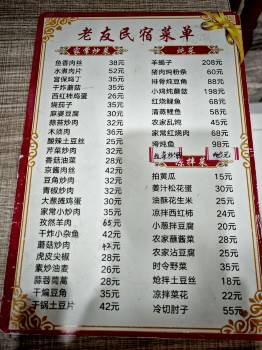 老友民宿菜单
家常炒菜
鱼香肉丝 38元
水煮肉片 52元
宫保鸡丁 35元
干炸蘑菇 35元
西红柿鸡蛋 35元
烧茄子 35元
麻婆豆腐 30元
蒜苔炒肉 38元
木须肉 36元
酸辣土豆丝 25元
芹菜炒肉 36元
香菇油菜 28元
京酱肉丝 42元
豆角炒肉 32元
青椒炒肉 32元
大葱摊鸡蛋 30元
家常小炒肉 35元
孜然羊肉 65元
干炸小杂鱼 42元
蘑菇炒肉 42元
虎皮尖椒 28元
素炒油麦 26元
蒜蓉茼蒿 28元
干煸豆角 35元
干锅土豆片 42元
炖菜
羊蝎子 208元
猪肉炖粉条 60元
排骨炖豆角 88元
小鸡炖蘑菇 198元
红烧鲤鱼 68元
清蒸鲤鱼 58元
农家乱炖 45元
家常红烧肉 68元
垮炖鱼 98元
凉拌菜
拍黄瓜 15元
姜汁松花蛋 30元
油酥花生米 25元
凉拌西红柿 24元
小葱拌豆腐 20元
农家蘸酱菜 28元
农家沾豆腐 25元
时令野菜 35元
炝拌土豆丝 18元
凉拌菜花 22元
冷切肘子 55元